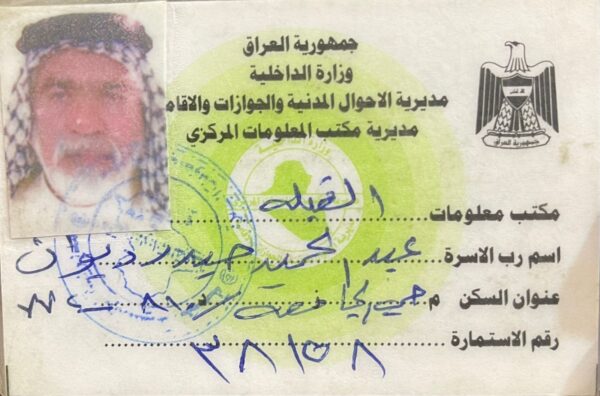 جمهورية العراق
وزارة الداخلية
مديرية الاحوال المدنية والجوازات والاقام
مديرية مكتب المعلومات المركزي
جمهورية العراق
مكتب معلومات القبله
اسم رب الاسرة عبد الحميد حيدر ديوان
عنوان السكن م
رقم الاستمارة